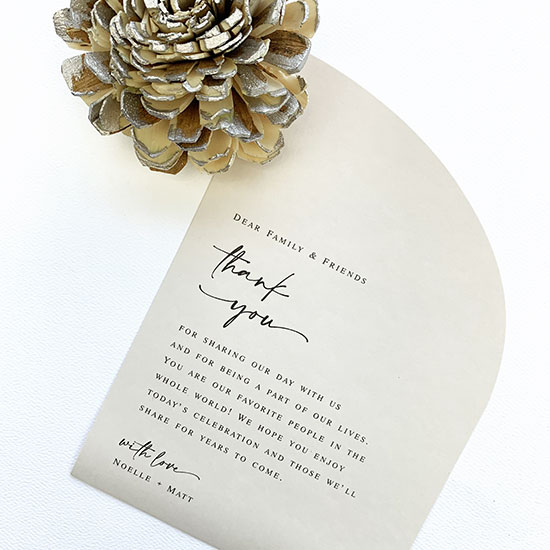 DEAR FAMILY & FRIENDS
thank
you
FOR SHARING OUR DAY WITH US
AND FOR BEING A PART OF OUR LIVES.
YOU ARE OUR FAVORITE PEOPLE IN THE
WHOLE WORLD! WE HOPE YOU ENJOY
TODAY'S CELEBRATION AND THOSE WE'LL
SHARE FOR YEARS TO COME.
with love
NOELLE + MATT